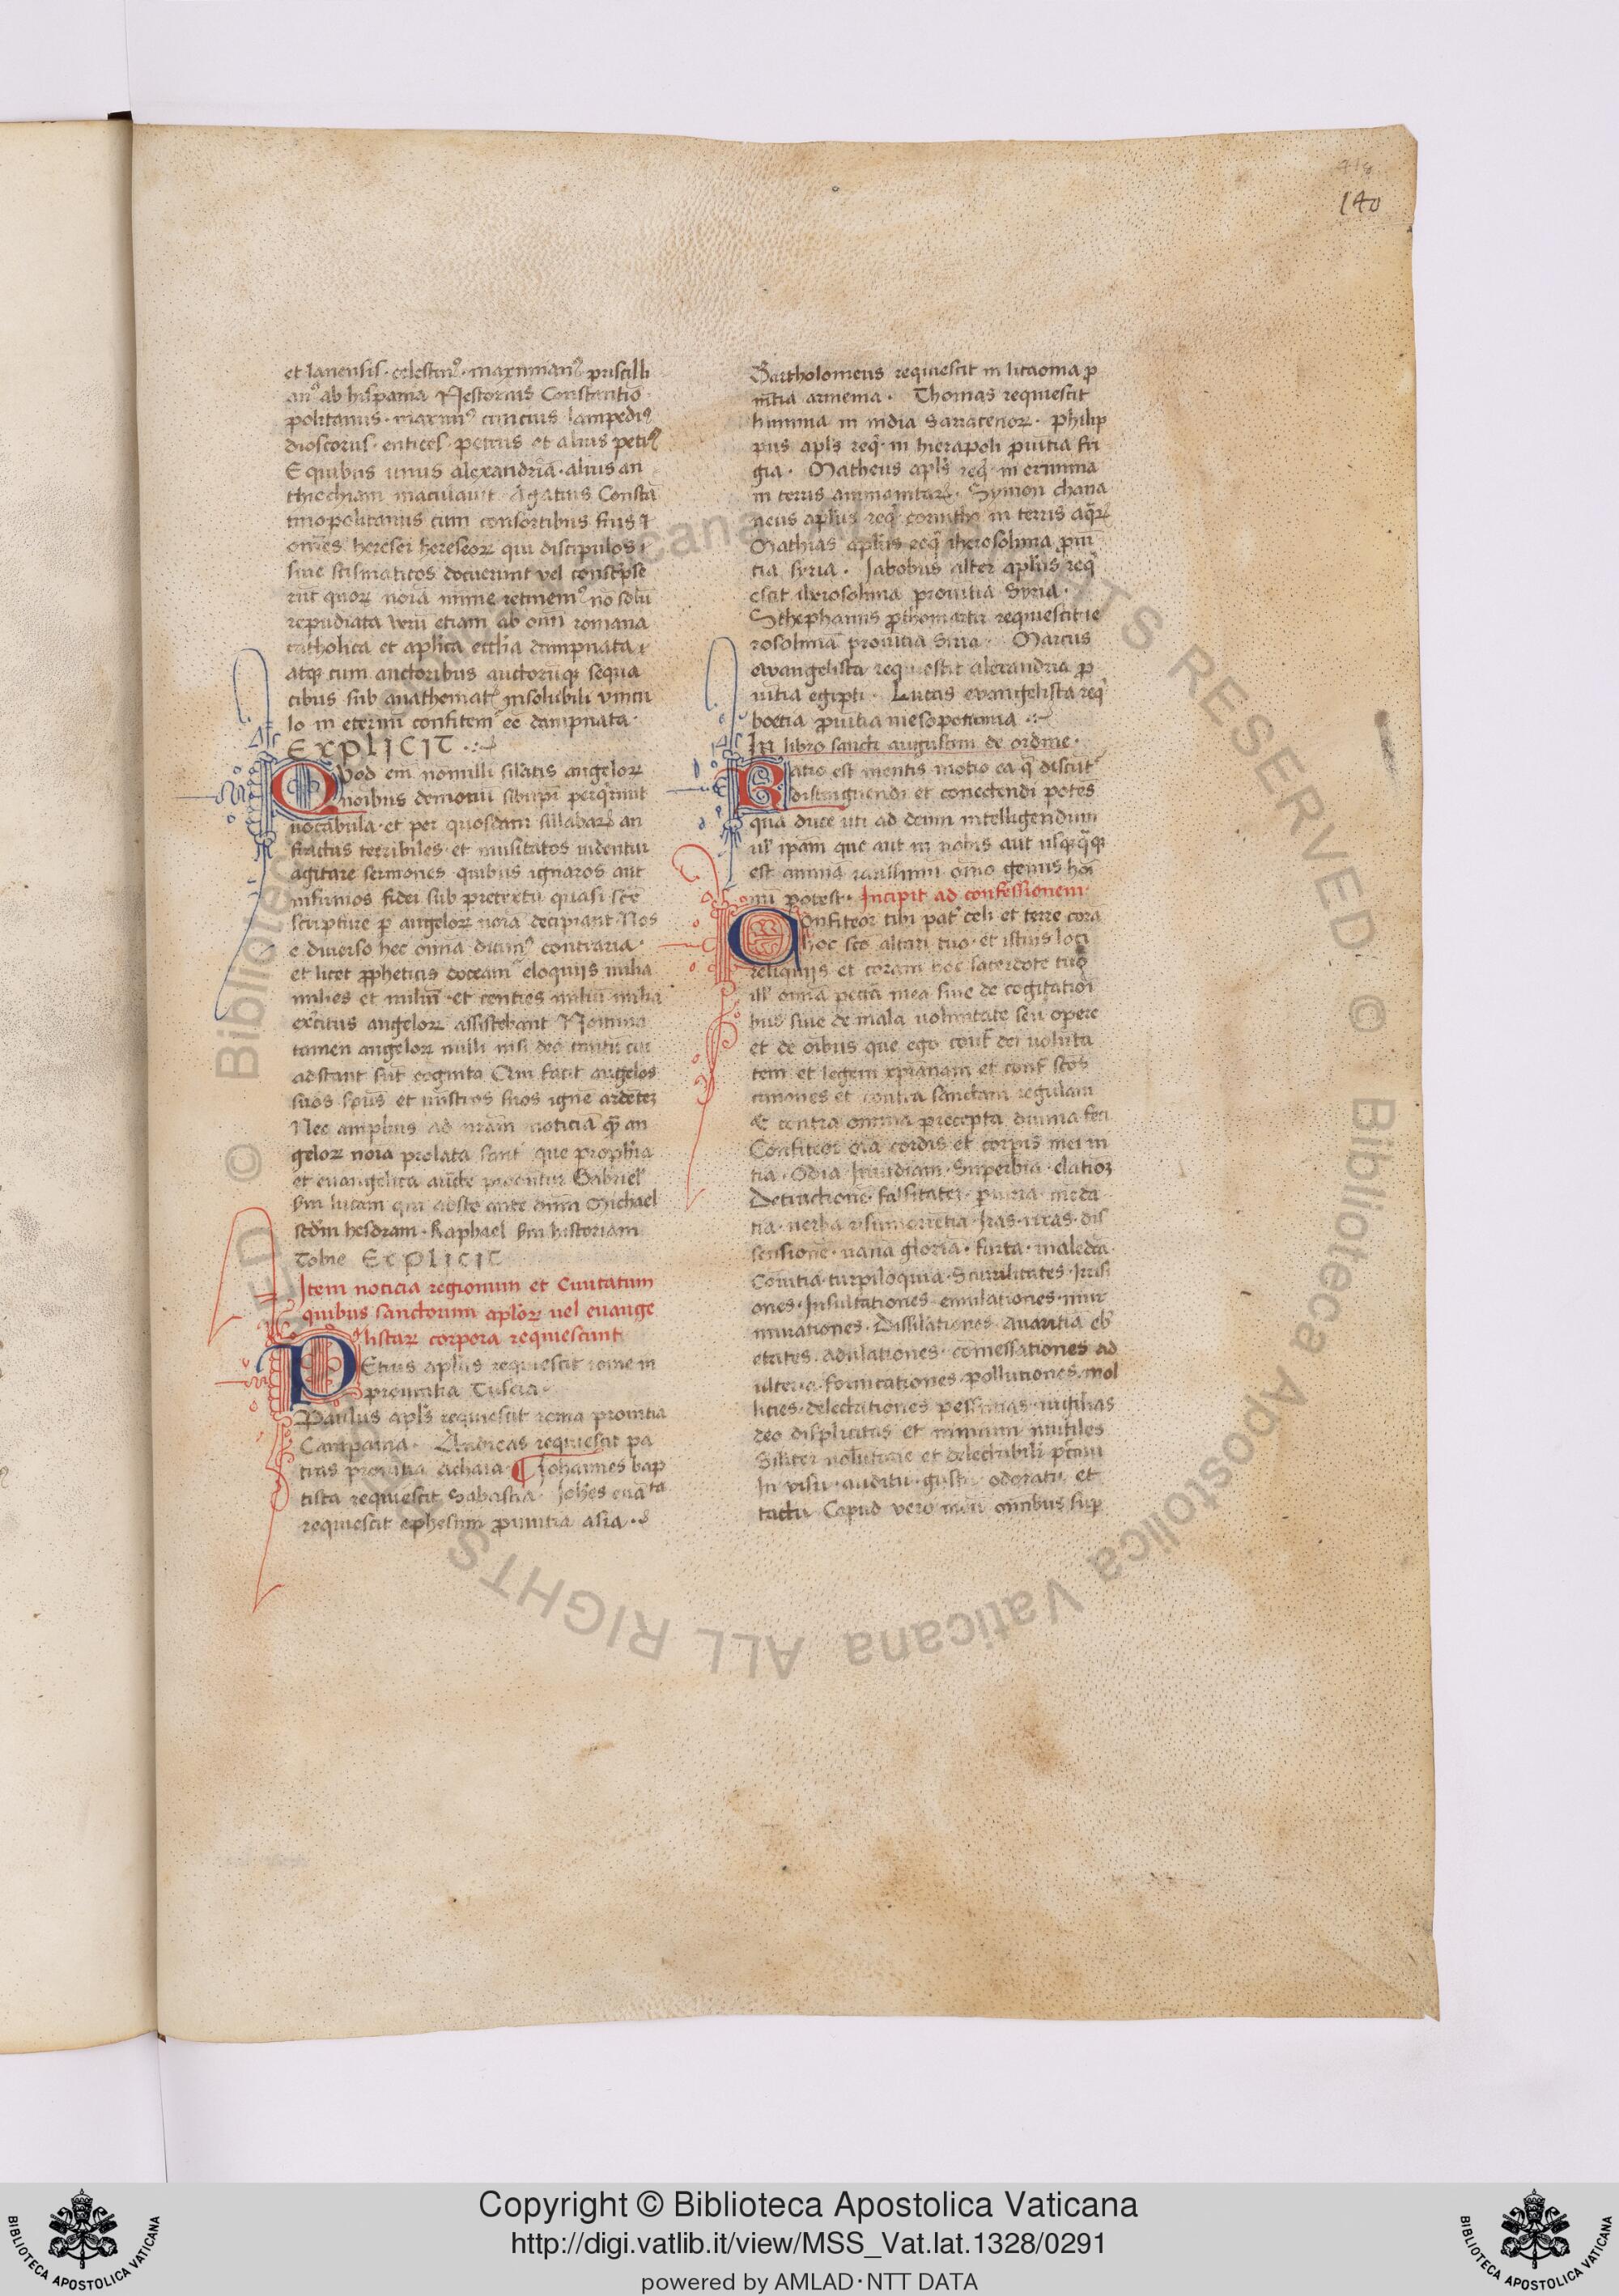 418
140
et Ianensis · celestinꝰ · maximianꝰ priscilli
anꝰ ab hispania Nestorius Constantino
politanus · maximꝰ cinicius lampediꝰ
dioscorus · entices · petrus et alius petrꝰ
E quibus unus alexandriā · alius an
thiochiam maculauit Agatius Constā
tinopolitanus cum consortibus suis ⁊
om̄es heresei hereseoꝝ qui discipulos ⁊
siue scismaticos docuerunt vel conscͥpse
rūt quoꝝ noīa minime retinemꝰ nō solū
repudiata verū etiam ab omī romana
catholica et aplīca ecclīa dampnata ⁊
atqꝫ cum auctoribus auctorūqꝫ sequa
cibus sub anathematꝭ insolubili vincu
lo in eternū confitemꝰ eē dampnata ·
EXPLICIT
Quod em̄ nonnulli silātis angeloꝝ
noībus demonū sibi ipī perqͥrunt
uocabula · et per quosdam sillabaꝝ an
fractus terribiles · et inusitatos uidentur
agitare sermones quibus ignaros aut
infirmos fidei sub pretextu quasi scē
scripture ꝑ angeloꝝ noīa decipiant Nos
e diuerso hec omīa dicimꝰ contraria ·
et licet ꝓpheticis doceamꝰ eloquijs milia
milies et miliū · et centies miliū milia
exͨitus angeloꝝ assistebant Nomina
tamen angeloꝝ nulli nisi deo tantū cui
adstant sūt cognita Qui facit angelos
suos spūs et mistros suos igne ardētꝫ
Nec amplius ad nrām noticiā qͣꝫ an
geloꝝ noīa prolata sunt que prophīa
et euangelica auctͤ Gabriel
scdm lucam qui adsto ante dūm Michael
scdm hesdram · Raphael scdm historiam
Tobie EXPLICIT
Item noticia regionum et Ciuitatum
quibus sanctorum aploꝝ uel euange
listaꝝ corpora requiescunt
PEtrus aplūs requiescit rome in
prouintia Tuscia ·
Paulus aplūs requiescit roma prouintia
Campania · Andreas requiescit pa
tras prouintia achaia · ¶ Iohannes bap
tista requiescit Sabastia · Iohēs euāᵗᵃ
requiescit ephesum ꝓuintia asia ·
Bartholomeus requiescit in licaonia ꝓ
uitia armenia · Thomas requiescit
himinia in india Sarracenoꝝ · Philip
pus aplūs reqͥ · in hierapoli ꝓuitia fri
gia · Matheus aplūs reqͥ · in
in terris · Symon chana
neus aplūs reqͥ corintho in terris
Mathias aplūs reqͥ iherosolima ꝓuī
tia syria · Iabobus alter aplūs reqͥ
escit iherosolima prouitia Syria ·
Sthephanus ꝓthomartir requiescit ie
rosolima prouitia Siria · Marcus
evangelista requiescit alexandria ꝓ
uitia egipti · Lucas evangelista reqͥ
boetia ꝓuitia mesopotamia
In libro sancti augustini de ordine ·
Ratio est mentis motio ea q̄ discūtꝭ
distinguendi et conectendi potēs
qua duce uti ad deum intelligendum
ul' ipam que aut in nobis aut usqꝫqͣqꝫ
est animā rarissimū oīno genus hoī
nū potest · Incipit ad confessionem
Confiteor tibi patͤ celi et terre corā
hoc scō altari tuo · et istius loci
reliquijs et coram hoc sacerdote tuo
ill' omīa peccā mea siue de cogitatiōi
bus siue de mala uoluntate seu opere
et de oībus que ego contͣ dei uolūta
tem et legem xpīanam et contͣ scōs
canones et contra sanctam regulam
Et contra omnia precepta diuina feci
Confiteor oīa cordis et corpis mei ui
tia · Odia Inuidiam · Superbiā · elatiōꝫ
Detractionē · falsitates ·
tia · verba · Iras · rixas · dis
sensionē · uana gloriā · furta · maledca
Conuitia turpiloquia · Scurilitates · Irrisi
ones · Insultationes emulationes · mur
murationes · auaritia eb
etates · adulationes · comessationes ad
ulteria · fornicationes · pollutiones · mol
lities · delectationes pessimas · inutilias
deo displicitas et nimium inutiles
Silīter uolūtarie et delectabiliͬ pccāui
In visu · auditu · gustu odoratu et
tactu Capud vero meū omnibus suꝑ
Copyright © Biblioteca Apostolica Vaticana
http://digi.vatlib.it/view/MSS_Vat.lat.1328/0291
powered by AMLAD·NTT DATA
BIBLIOTECA APOSTOLICA VATICANA
BIBLIOTECA APOSTOLICA VATICANA
© Biblioteca Apostolica Vaticana ALL RIGHTS RESERVED